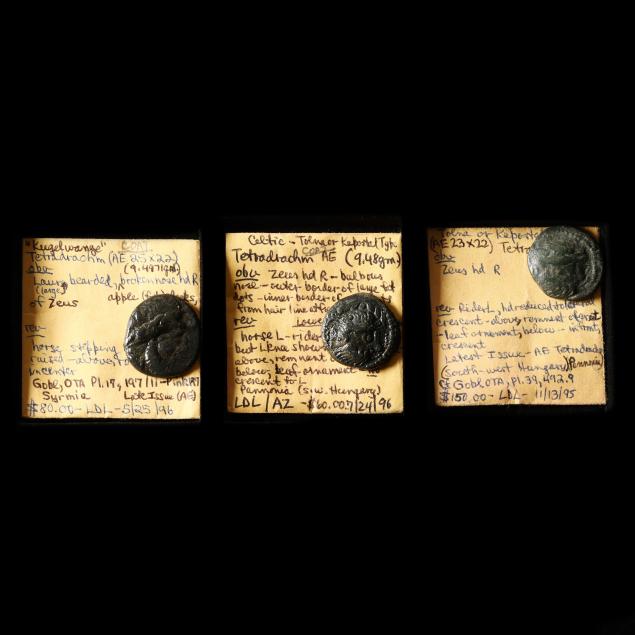 "Kugelwange" COAT
Tetradrachm (AE 25x22)
obv (9.497gm)
Laur, bearded, broken nose hd R
(large) apple
of Zeus
rev
horse stepping
raised - above,
Gobl, OTA Pl. 19, 197/11 -
Syrmia Late Issue (AE)
$80.00 - LDL - 5/25/96
Celtic - Tolna or Kapostal Type
COAT
Tetradrachm AE (9.48gm)
obv Zeus hd R - bulbous
nose - outer border of large
dots - inner border of
from hair line
rev Lower
horse L - rider
but L
above, remnant
below, leaf ornament
crescent to L
Pannonia (s.w. Hungary)
LDL / AZ - $60.00 7/24/96
Tolna or Kapostal
(AE 23x22) Tetra
obv
Zeus hd R
rev Rider L, hd reduced to
crescent - above, remnant of
- leaf ornament, below -
crescent
Latest Issue - AE Tetradrachm
(south-west Hungary) Pannonia
Cf Gobl OTA, Pl. 39, 492.9
$150.00 - LDL - 11/13/95